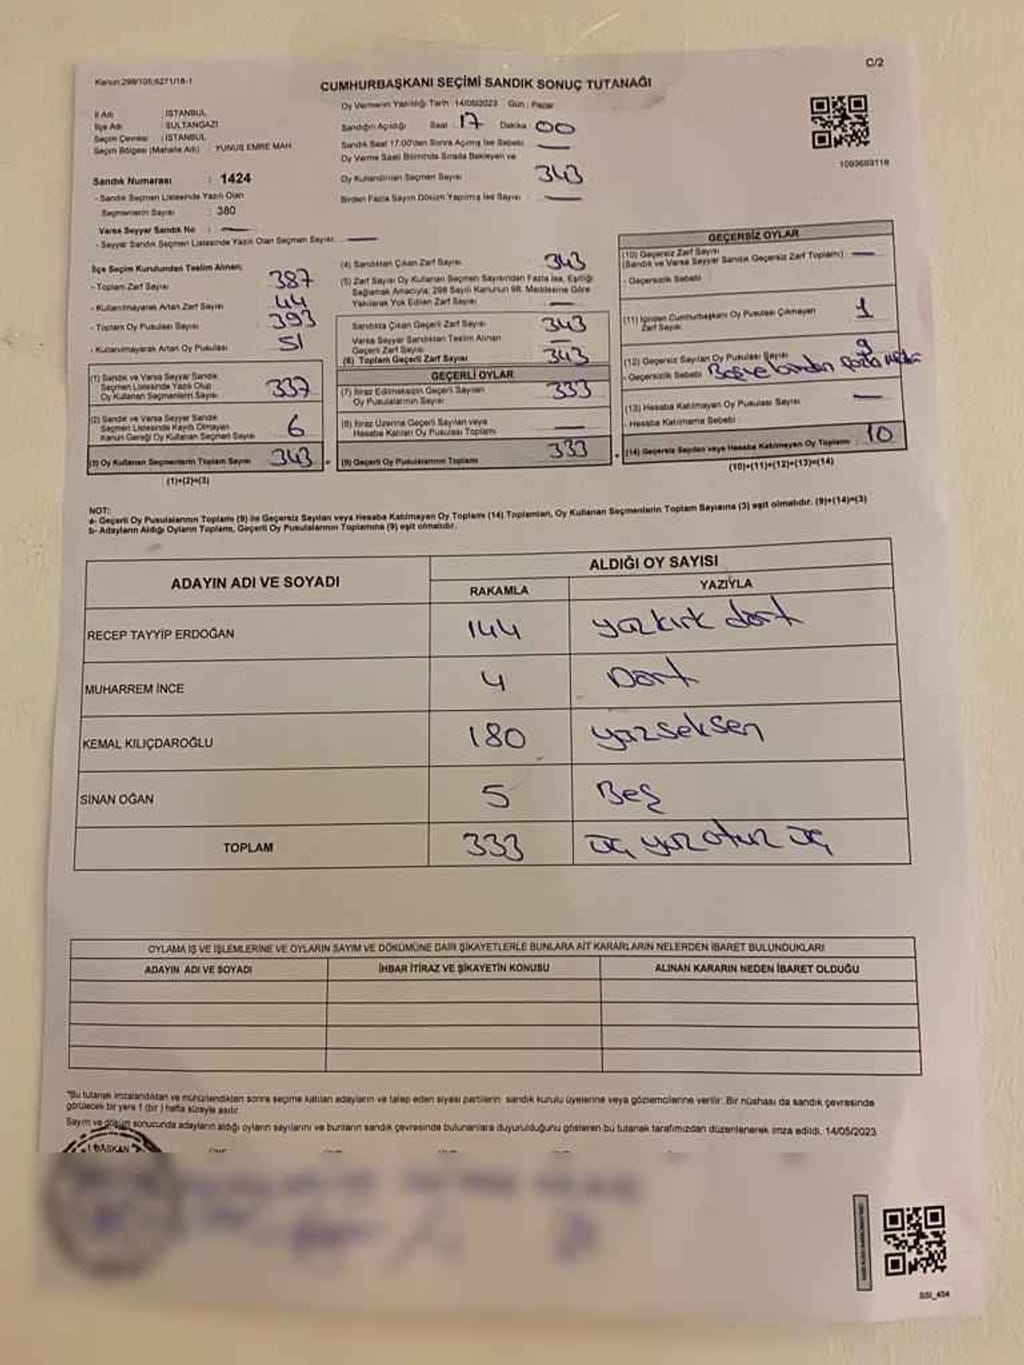 C/2
Kanun:298/105;6271/18-1
CUMHURBAŞKANI SEÇİMİ SANDIK SONUÇ TUTANAĞI
Oy Vermenin Yapıldığı Tarih :14/05/2023 Gün : Pazar
İl Adı : İSTANBUL
İlçe Adı : SULTANGAZİ
Seçim Çevresi : İSTANBUL
Seçim Bölgesi (Mahalle Adı) : YUNUS EMRE MAH
Sandığın Açıldığı Saat : 17 Dakika : 00
Sandık Saat 17:00'den Sonra Açılmış İse Sebebi : —
Oy Verme Saati Bitiminde Sırada Bekleyen ve
Oy Kullandırılan Seçmen Sayısı 343
Birden Fazla Sayım Döküm Yapılmış İse Sayısı : —
1003603118
Sandık Numarası : 1424
- Sandık Seçmen Listesinde Yazılı Olan
Seçmenlerin Sayısı : 380
Varsa Seyyar Sandık No : —
- Seyyar Sandık Seçmen Listesinde Yazılı Olan Seçmen Sayısı: —
İlçe Seçim Kurulundan Teslim Alınan;
- Toplam Zarf Sayısı 387
- Kullanılmayarak Artan Zarf Sayısı 44
- Toplam Oy Pusulası Sayısı 393
- Kullanılmayarak Artan Oy Pusulası 51
(1) Sandık ve Varsa Seyyar Sandık
Seçmen Listesinde Yazılı Olup
Oy Kullanan Seçmenlerin Sayısı 337
(2) Sandık ve Varsa Seyyar Sandık
Seçmen Listesinde Kayıtlı Olmayan
Kanun Gereği Oy Kullanan Seçmen Sayısı 6
(3) Oy Kullanan Seçmenlerin Toplam Sayısı 343
(1)+(2)=(3)
(4) Sandıktan Çıkan Zarf Sayısı 343
(5) Zarf Sayısı Oy Kullanan Seçmen Sayısından Fazla İse, Eşitliği
Sağlamak Amacıyla; 298 Sayılı Kanunun 98. Maddesine Göre
Yakılarak Yok Edilen Zarf Sayısı —
Sandıkta Çıkan Geçerli Zarf Sayısı 343
Varsa Seyyar Sandıktan Teslim Alınan
Geçerli Zarf Sayısı —
(6) Toplam Geçerli Zarf Sayısı 343
GEÇERLİ OYLAR
(7) İtiraz Edilmeksizin Geçerli Sayılan
Oy Pusulalarının Sayısı 333
(8) İtiraz Üzerine Geçerli Sayılan veya
Hesaba Katılan Oy Pusulası Toplamı —
(9) Geçerli Oy Pusulalarının Toplamı 333
GEÇERSİZ OYLAR
(10) Geçersiz Zarf Sayısı
(Sandık ve Varsa Seyyar Sandık Geçersiz Zarf Toplamı) : —
- Geçersizlik Sebebi :
(11) İçinden Cumhurbaşkanı Oy Pusulası Çıkmayan
Zarf Sayısı 1
(12) Geçersiz Sayılan Oy Pusulası Sayısı 9
- Geçersizlik Sebebi fazla
(13) Hesaba Katılmayan Oy Pusulası Sayısı —
- Hesaba Katılmama Sebebi :
(14) Geçersiz Sayılan veya Hesaba Katılmayan Oy Toplamı 10
(10)+(11)+(12)+(13)=(14)
NOT:
a- Geçerli Oy Pusulalarının Toplamı (9) ile Geçersiz Sayılan veya Hesaba Katılmayan Oy Toplamı (14) Toplamları, Oy Kullanan Seçmenlerin Toplam Sayısına (3) eşit olmalıdır. (9)+(14)=(3)
b- Adayların Aldığı Oyların Toplamı, Geçerli Oy Pusulalarının Toplamına (9) eşit olmalıdır.
ADAYIN ADI VE SOYADI ALDIĞI OY SAYISI
RAKAMLA YAZIYLA
RECEP TAYYİP ERDOĞAN 144 yüzkırk dört
MUHARREM İNCE 4 Dört
KEMAL KILIÇDAROĞLU 180 yüzseksen
SİNAN OĞAN 5 Beş
TOPLAM 333 üç yüz otuz üç
OYLAMA İŞ VE İŞLEMLERİNE VE OYLARIN SAYIM VE DÖKÜMÜNE DAİR ŞİKAYETLERLE BUNLARA AİT KARARLARIN NELERDEN İBARET BULUNDUKLARI
ADAYIN ADI VE SOYADI İHBAR İTİRAZ VE ŞİKAYETİN KONUSU ALINAN KARARIN NEDEN İBARET OLDUĞU
*Bu tutanak imzalandıktan ve mühürlendikten sonra seçime katılan adayların ve talep eden siyasi partilerin sandık kurulu üyelerine veya gözlemcilerine verilir. Bir nüshası da sandık çevresinde
görülecek bir yere 1 (bir) hafta süreyle asılır.
Sayım ve döküm sonucunda adayların aldığı oyların sayılarını ve bunların sandık çevresinde bulunanlara duyurulduğunu gösteren bu tutanak tarafımızdan düzenlenerek imza edildi. 14/05/2023
BAŞKAN
SSI_404